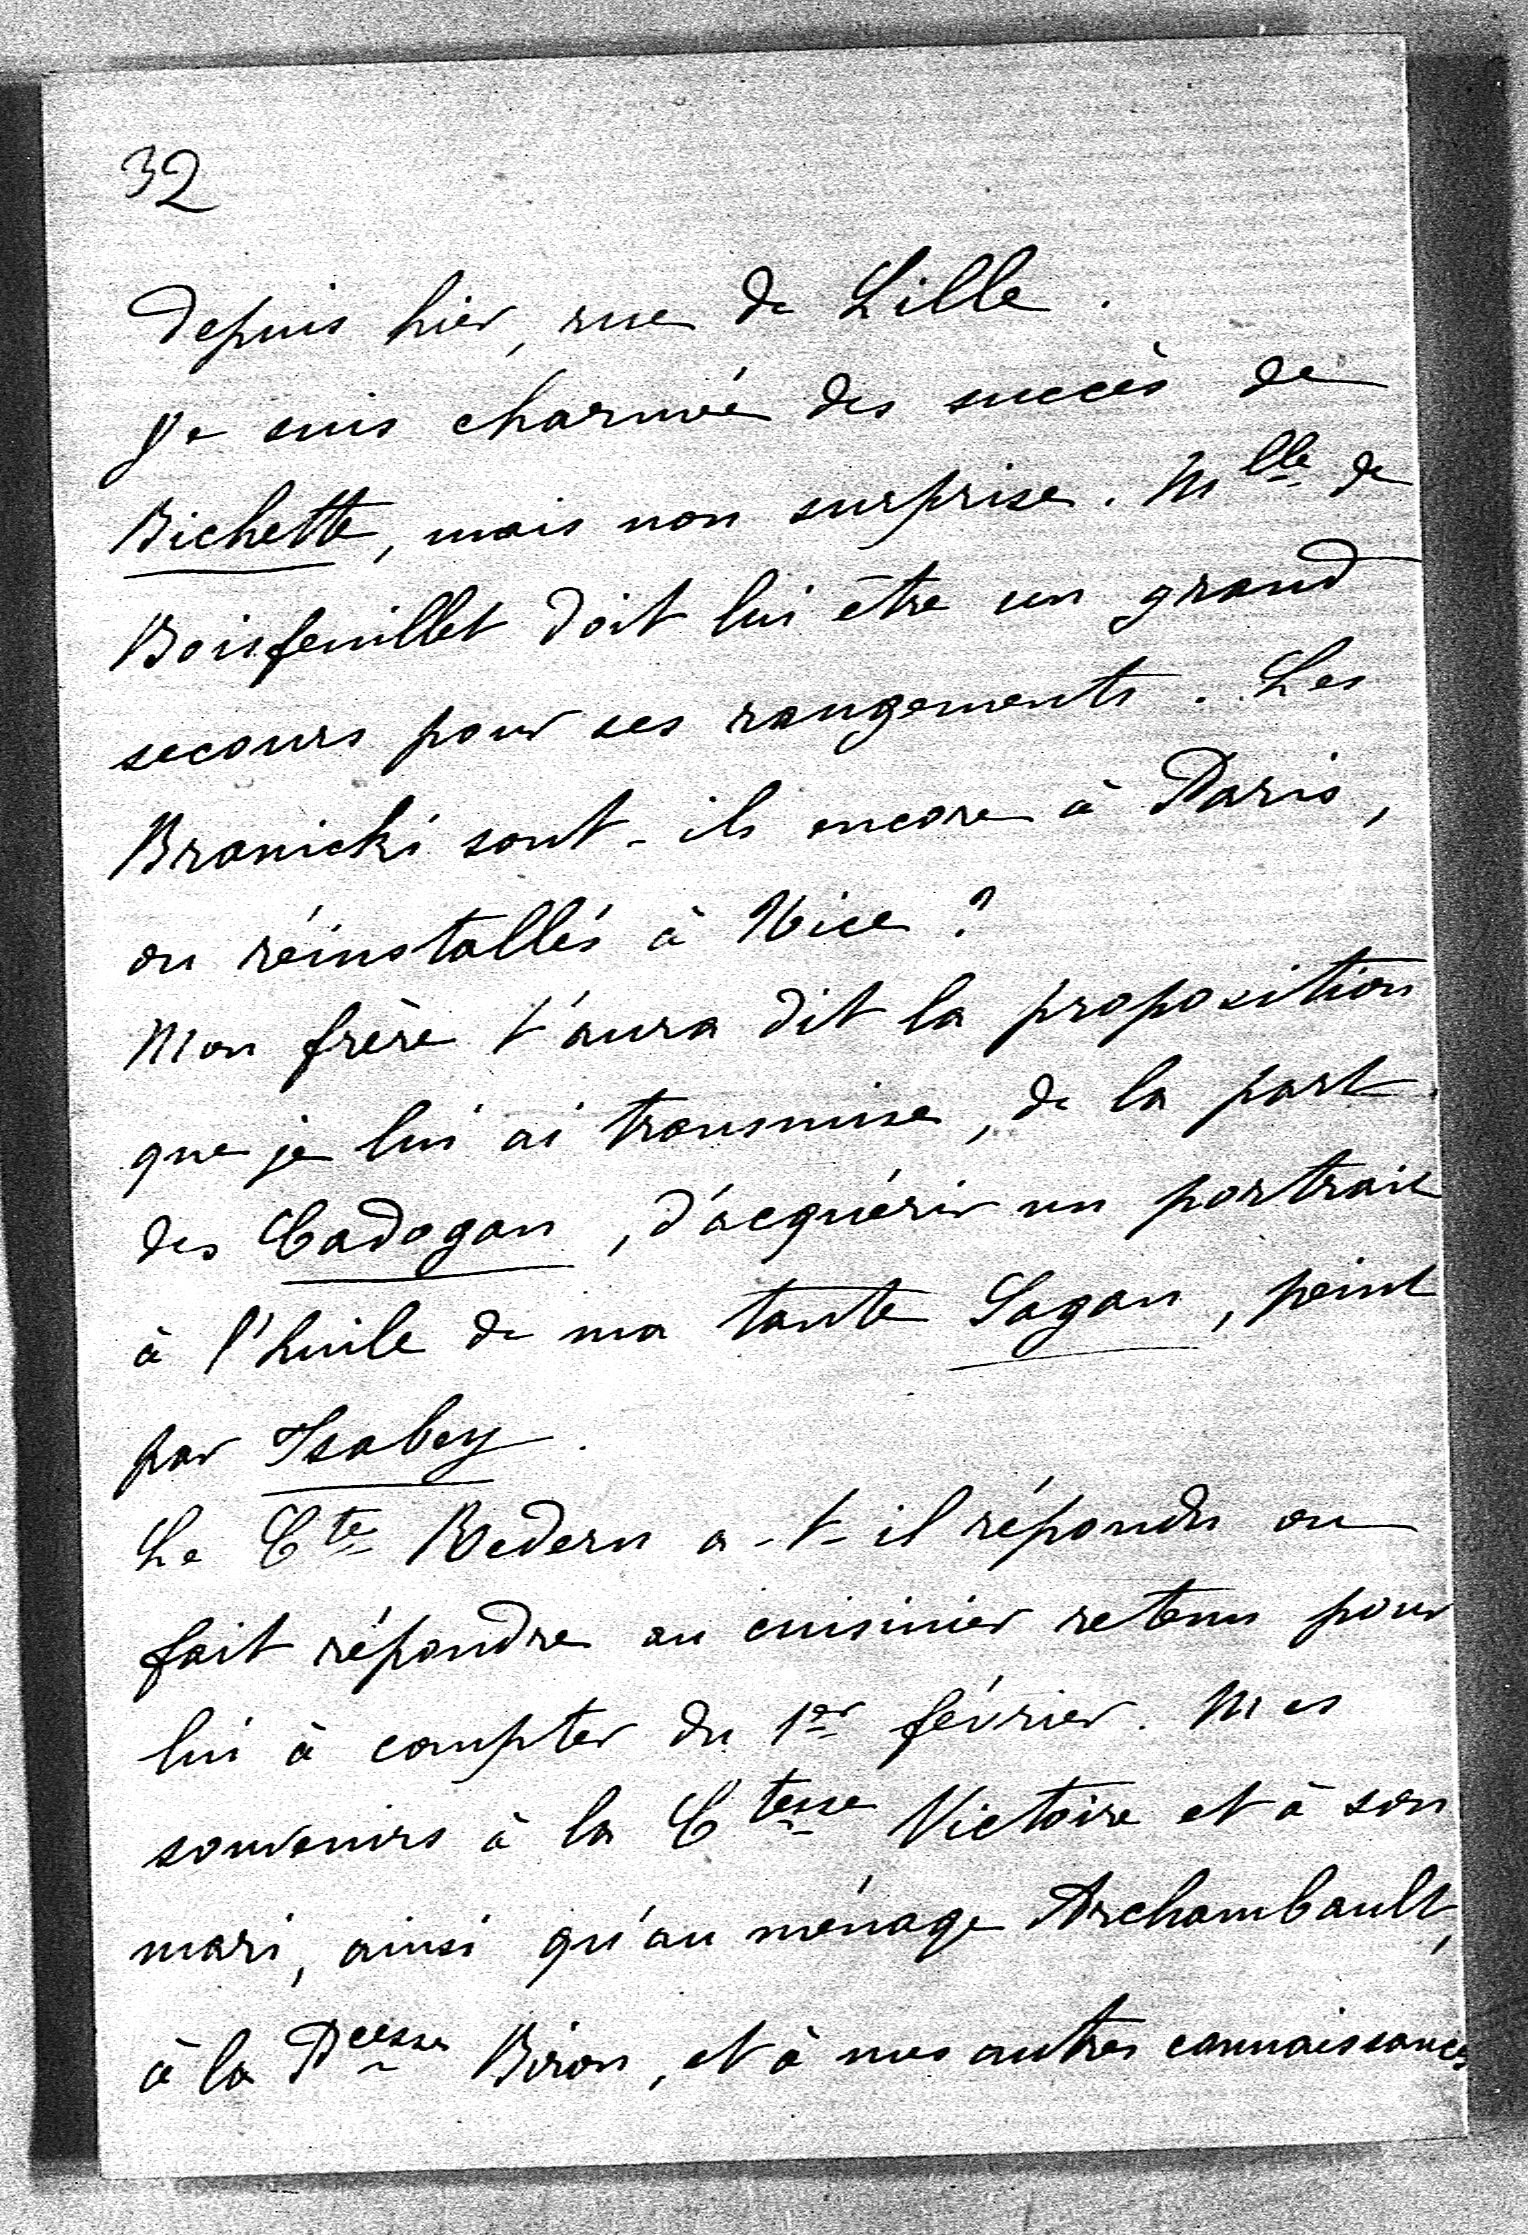 32
depuis hier, rue de Lille.
Je suis charmée des succès de
Bichette, mais non surprise. Mlle de
Boisfeuillet doit lui être un grand
secours pour ses rangements. Les
Branicki sont-ils encore à Paris,
ou réinstallés à Nice ?
Mon frère t'aura dit la proposition
que je lui ai transmise, de la part
des Cadogan, d'acquérir un portrait
à l'huile de ma tante Sagan, peint
par Isabey.
Le Cte Redern a-t-il répondu ou
fait répondre au cuisinier retenu pour
lui à compter du 1er février. Mes
souvenirs à la Ctesse Victoire et à son
mari, ainsi qu'au ménage Archambault,
à la Pcesse Biron, et à mes autres connaissances